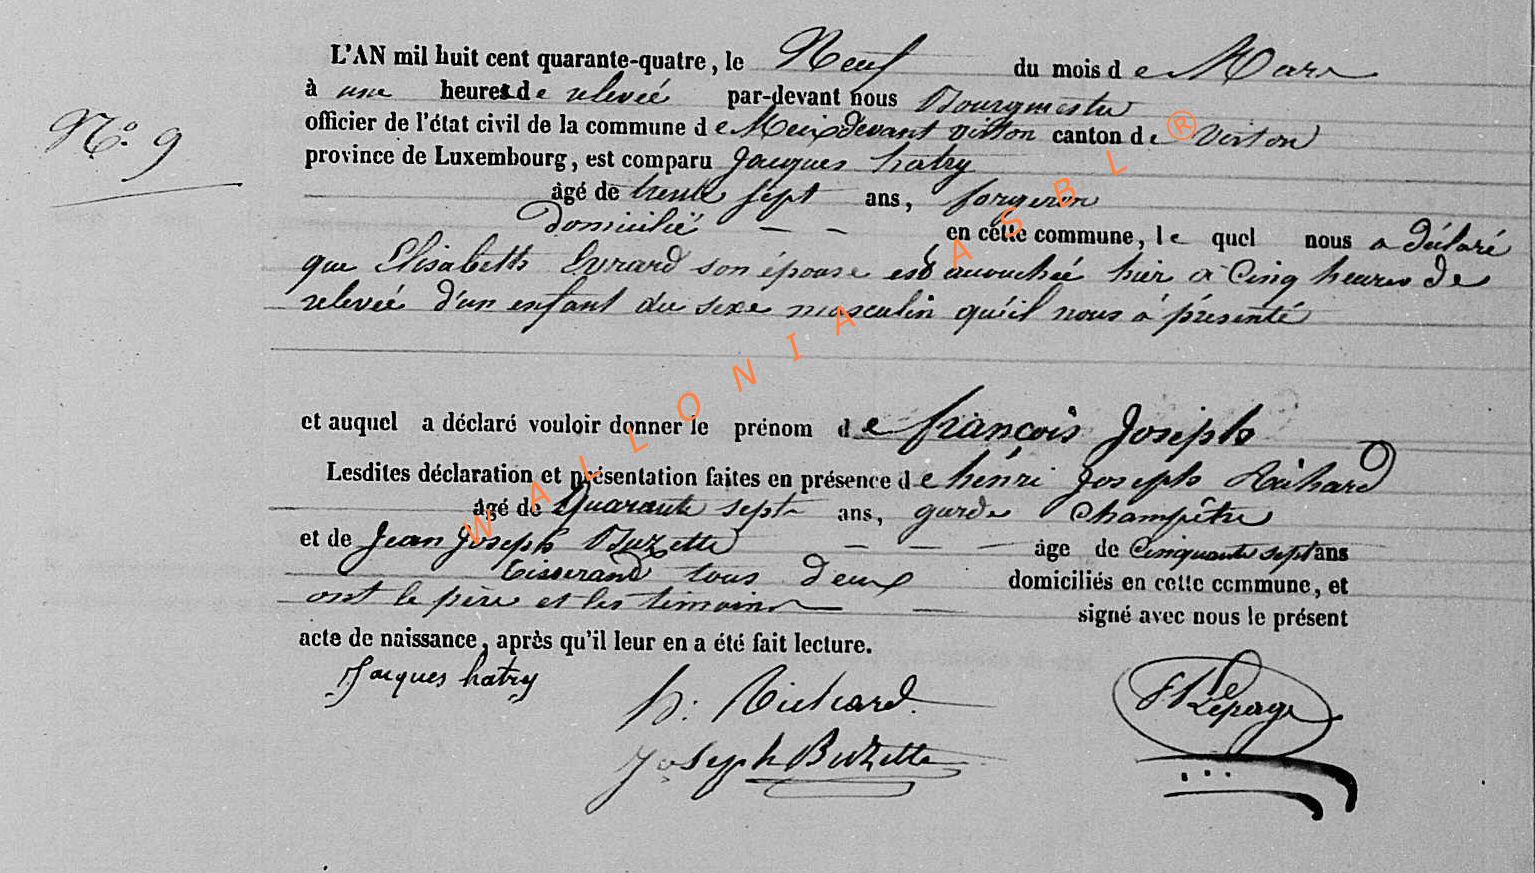 L'AN mil huit cent quarante-quatre, le Neuf du mois de Mars
à une heure de relevée par-devant nous Bourgmestre
N.° 9
officier de l'état civil de la commune de Meix devant virton canton de Virton
province de Luxembourg, est comparu Jacques hatry
âgé de trente sept ans, forgeron
domicilié - - en cette commune, le quel nous a déclaré
que Elisabeth Evrard son épouse est accouchée hier à Cinq heures de
relevée d'un enfant du sexe masculin qu'il nous à présenté
et auquel a déclaré vouloir donner le prénom de françois Joseph
Lesdites déclaration et présentation faites en présence de hénri Joseph Richard
âgé de Quarante sept ans, garde Champêtre
et de Jean Joseph Buzette - - - âgé de Cinquante sept ans
tisserand tous deux domiciliés en cette commune, et
ont le père et les témoins — signé avec nous le présent
acte de naissance, après qu'il leur en a été fait lecture.
Jacques hatry
h: Richard.
Lepage
Joseph Buzette
WALLONIA ASBL ®